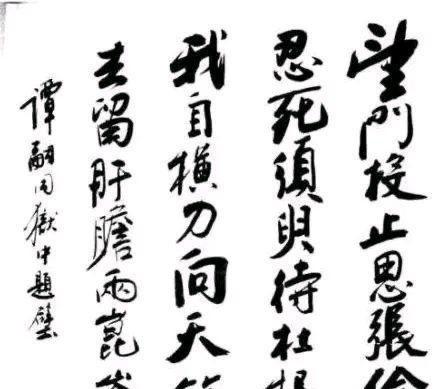 望門投止思張
忍死須臾待杜
我自横刀向天
去留肝膽兩崑
譚嗣同獄中題壁